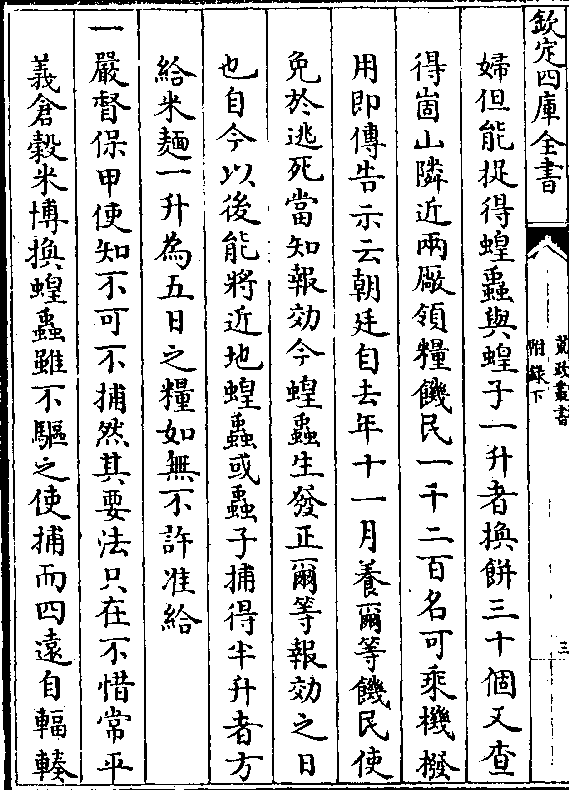 欽定四庫全書
荒政叢書
附錄下
三
婦但能捉得蝗蟲與蝗子一升者換餅三十個又查
得崮山隣近兩厰領糧饑民一千二百名可乘機撥
用即傳告示云朝廷自去年十一月養爾等饑民使
免於逃死當知報効今蝗蟲生發正爾等報効之日
也自今以後能將近地蝗蟲或蟲子捕得半升者方
給米麵一升為五日之糧如無不許准給
一嚴督保甲使知不可不捕然其要法只在不惜常平
義倉穀米博換蝗蟲雖不驅之使捕而四遠自輻輳